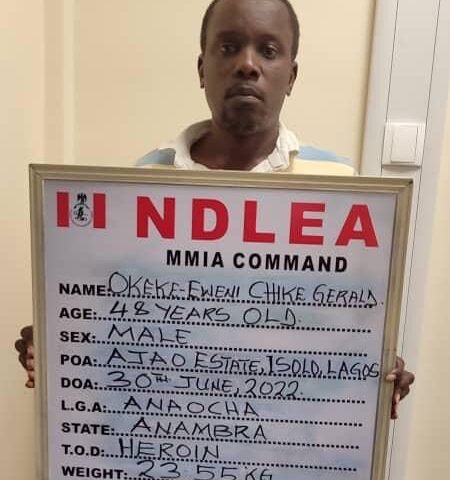 NDLEA
MMIA COMMAND
NAME: OKEKE-EWENI CHIKE GERALD
AGE: 48 YEARS OLD
SEX: MALE
POA: AJAO ESTATE, ISOLO, LAGOS
DOA: 30TH JUNE, 2022
L.G.A: ANAOCHA
STATE: ANAMBRA
T.O.D: HEROIN
WEIGHT: 23.55KG